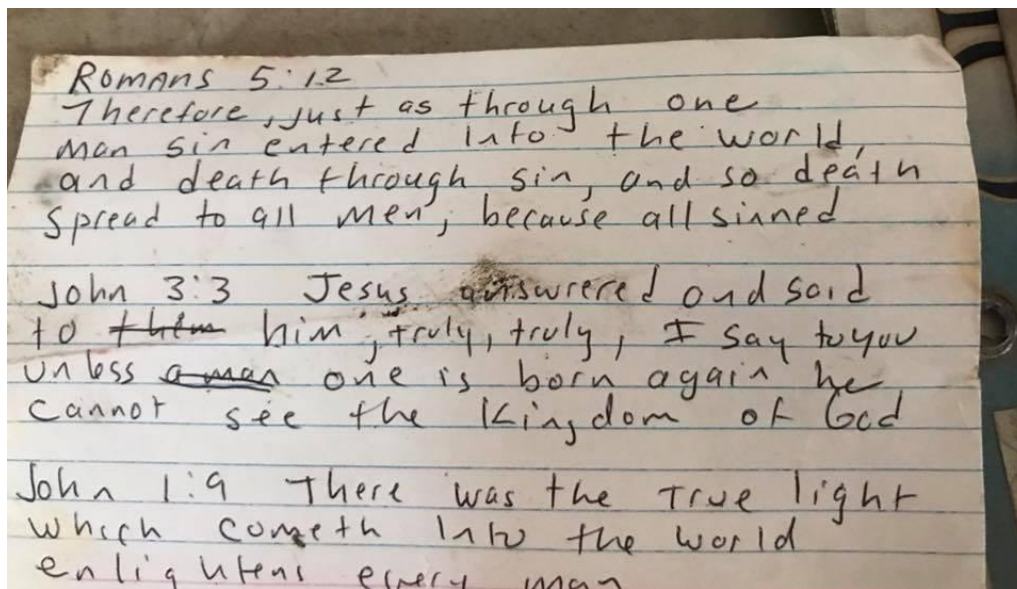 Romans 5:12
Therefore, just as through one
man sin entered into the world,
and death through sin, and so death
spread to all men, because all sinned
John 3:3 Jesus answrered and said
to them him, truly, truly, I say to you
unless a man one is born again he
cannot see the Kingdom of God
John 1:9 There was the True light
which cometh into the world
enlightens every man